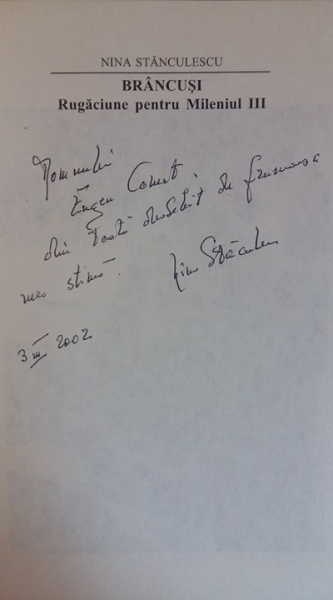 NINA STĂNCULESCU
BRÂNCUȘI
Rugăciune pentru Mileniul III
Domnului
Eugen
din toată deosebit de frumoasa
mea stimă.
Nina Stănculescu
3 III 2002